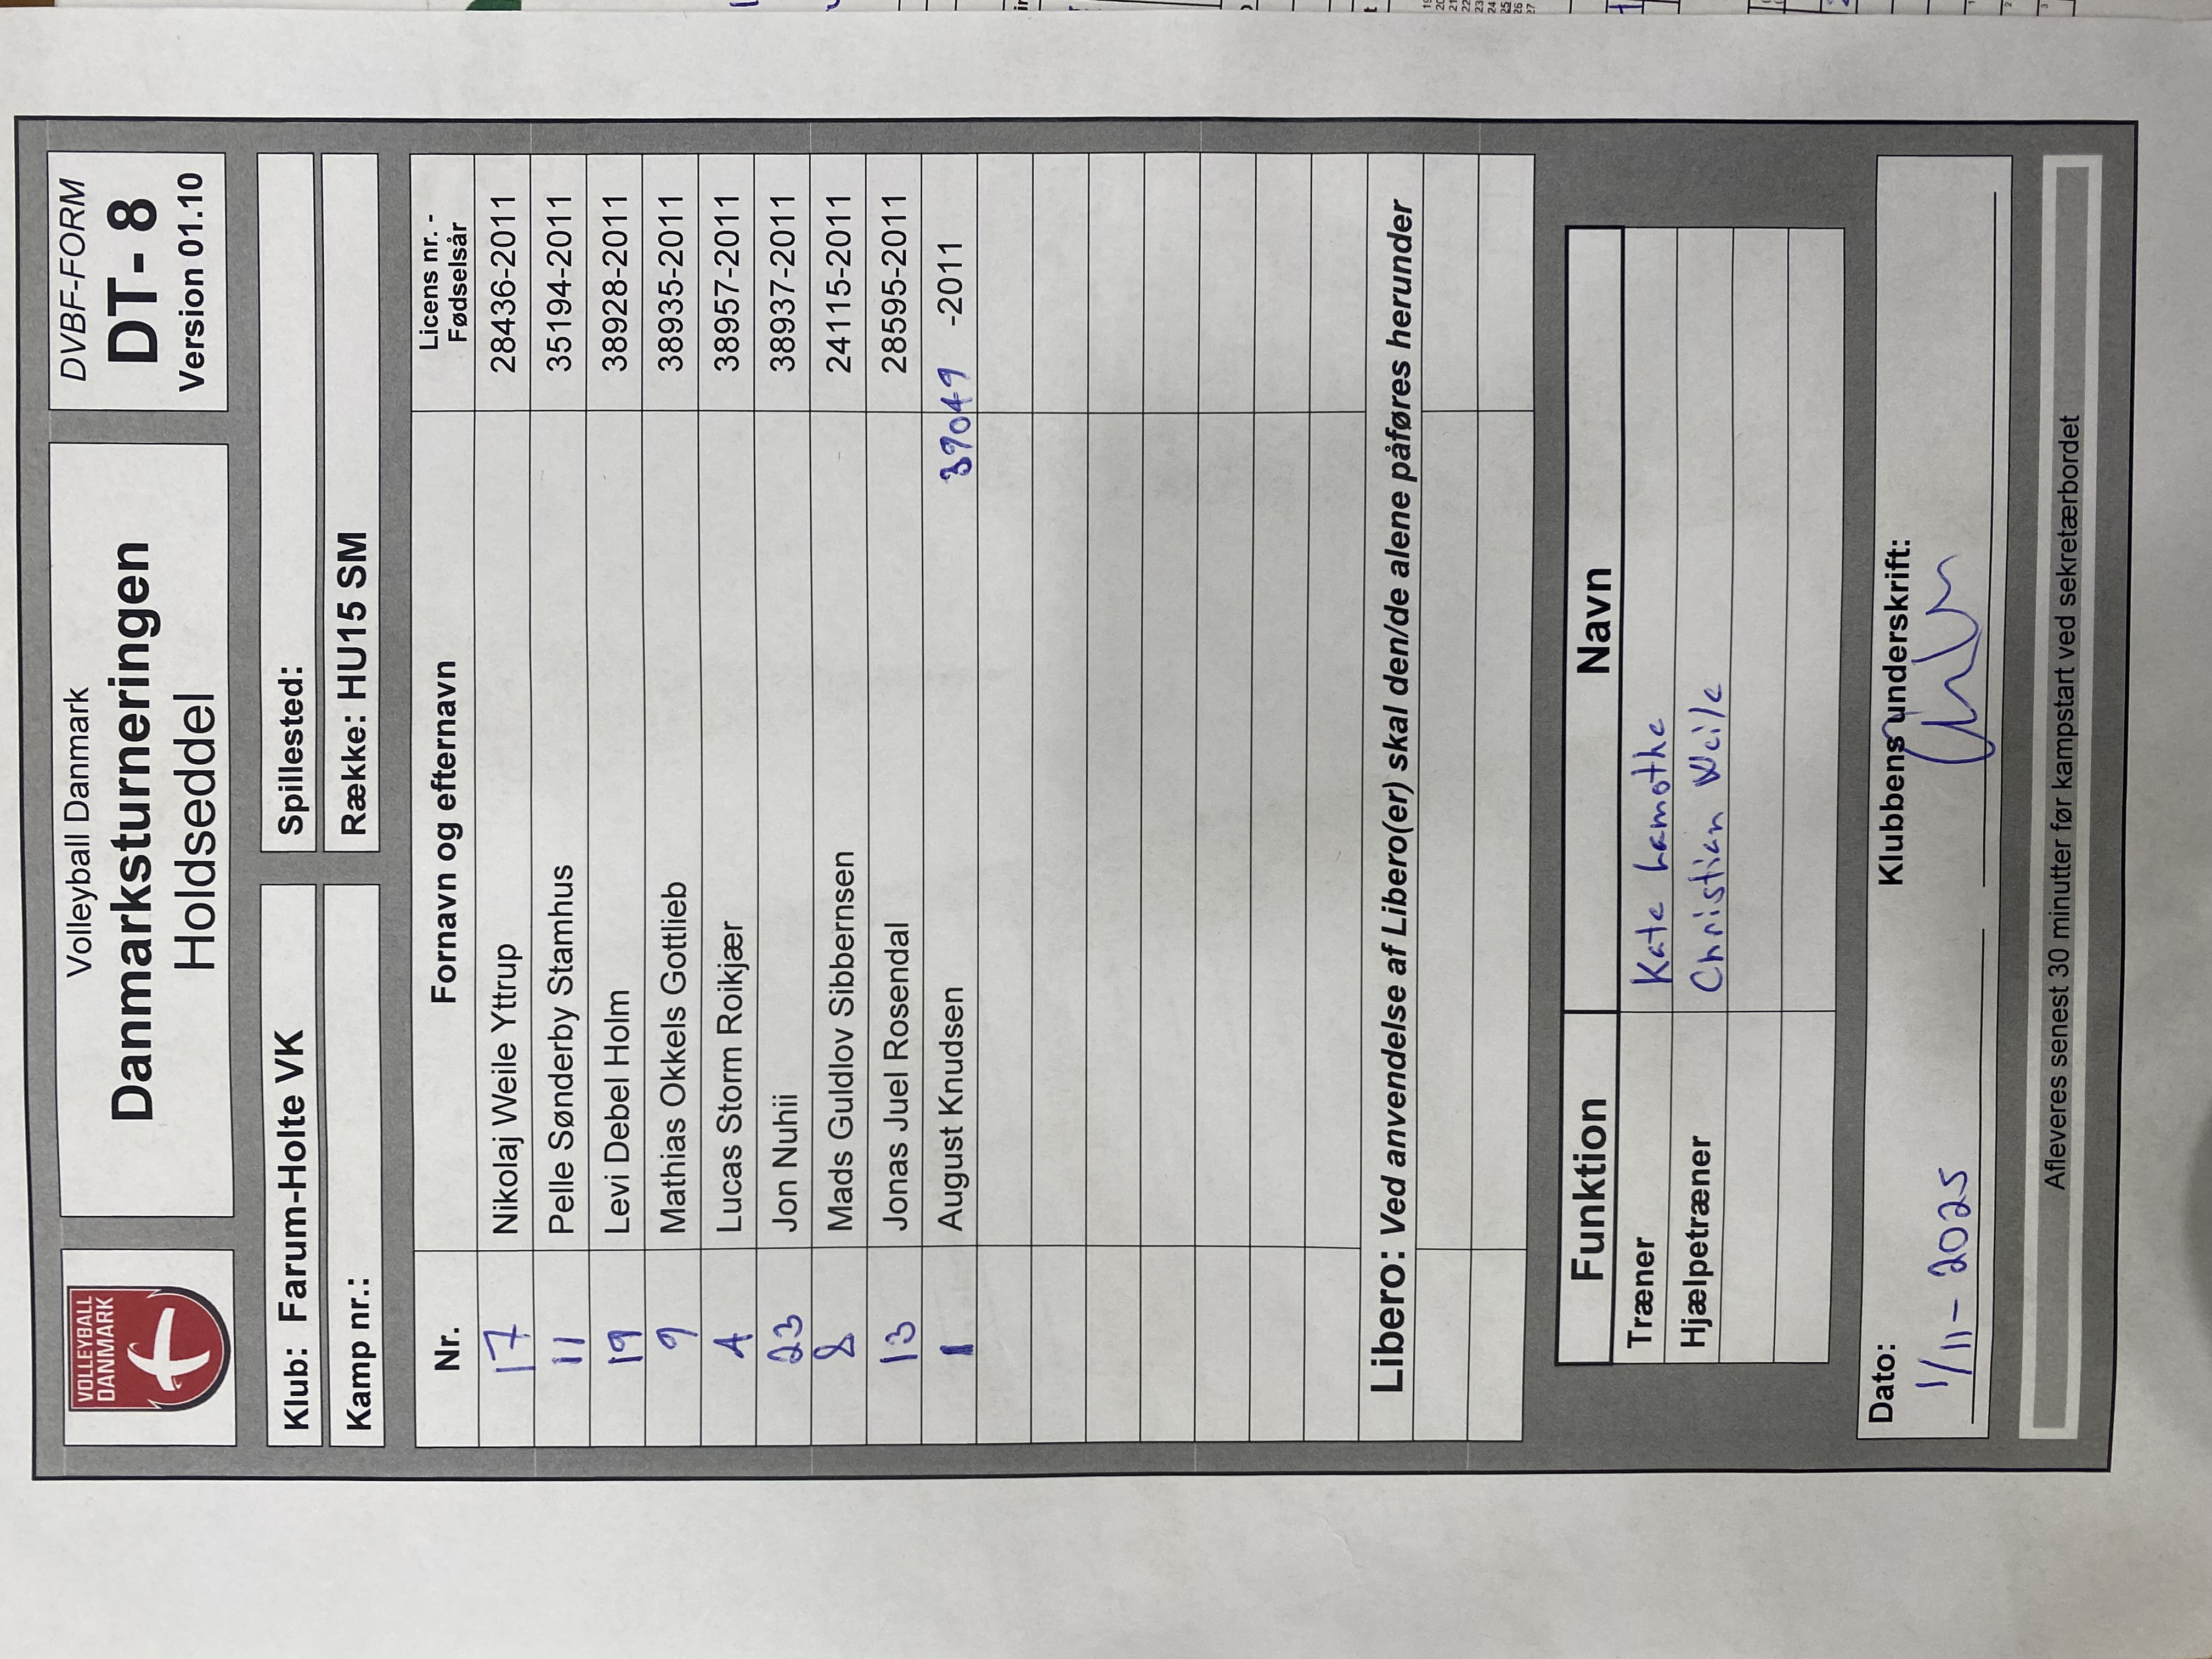 VOLLEYBALL
DANMARK
Volleyball Danmark
Danmarksturneringen
Holdseddel
DVBF-FORM
DT- 8
Version 01.10
Klub: Farum-Holte VK
Spillested:
Kamp nr.:
Række: HU15 SM
Nr. Fornavn og efternavn Licens nr. - Fødselsår
17 Nikolaj Weile Yttrup 28436-2011
11 Pelle Sønderby Stamhus 35194-2011
19 Levi Debel Holm 38928-2011
9 Mathias Okkels Gottlieb 38935-2011
4 Lucas Storm Roikjær 38957-2011
23 Jon Nuhii 38937-2011
8 Mads Guldlov Sibbernsen 24115-2011
13 Jonas Juel Rosendal 28595-2011
1 August Knudsen 39049 -2011
Libero: Ved anvendelse af Libero(er) skal den/de alene påføres herunder
Funktion Navn
Træner Kate Lamothe
Hjælpetræner Christian Weile
Dato: Klubbens underskrift:
1/11-2025
Afleveres senest 30 minutter før kampstart ved sekretærbordet